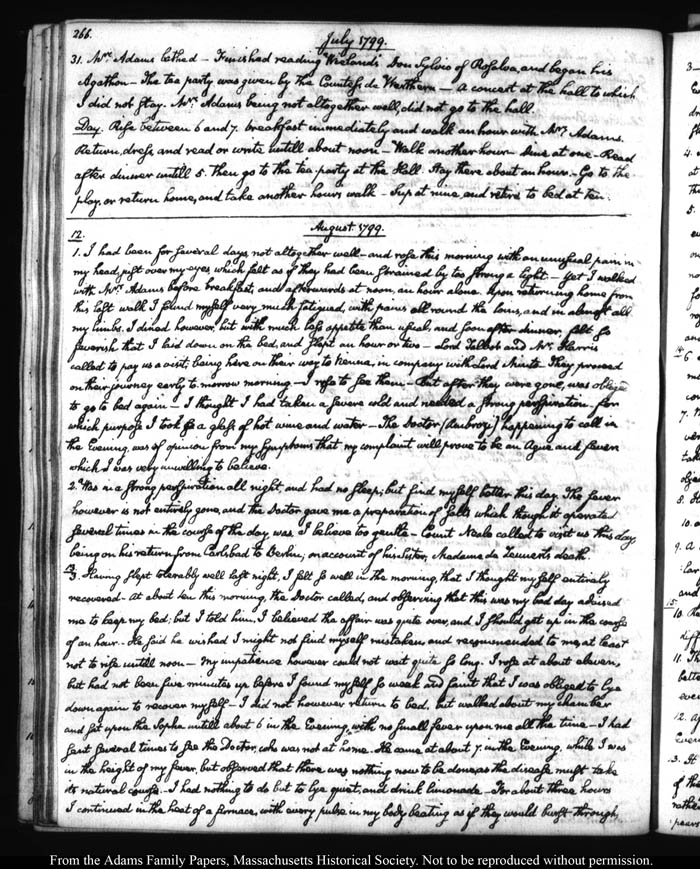 266.
July 1799.
31. Mrs. Adams bathed — Finished reading Wieland's Don Sylvio of Rosalva, and began his
Agathon — The tea party was given by the Countess de Werthern — a concert at the hall to which
I did not stay. Mrs. Adams being not altogether well, did not go to the hall.
Day. Rise between 6 and 7. breakfast immediately and walk an hour with Mrs. Adams.
Return, dress and read or write untill about noon — Walk another hour — Dine at one — Read
after dinner untill 5. then go to the tea party at the Hall. Stay there about an hour — Go to the
play, or return home, and take another hours walk — Sup at nine, and retire to bed at ten.
August 1799.
12.
1. I had been for several days not altogether well — and rose this morning with an unusual pain in
my head, just over my eyes which felt as if they had been strained by too strong a light — Yet I walked
with Mrs. Adams before breakfast, and afterwards at noon, an hour alone. Upon returning home from
this last walk I found myself very much fatigued, with pains all round the loins, and in almost all
my limbs. I dined however, but with much less appetite than usual, and soon after dinner, felt so
feverish that I laid down on the bed, and slept an hour or two — Lord Talbot and Mr. Harris
called to pay us a visit, being here on their way to Vienna, in company with Lord Minto. They proceed
on their journey early to-morrow morning — I rose to see them — But after they were gone, was obliged
to go to bed again — I thought I had taken a severe cold and needed a strong perspiration. for
which purpose I took a glass of hot wine and water — The Doctor (Ambrozi) happening to call in
the Evening, was of opinion from my symptoms that my complaint will prove to be an Ague and fever
which I was very unwilling to believe.
2. Was in a strong perspiration all night and had no sleep; but find myself better this day. The fever
however is not entirely gone, and the Doctor gave me a preparation of salts which though it operated
several times in the course of the day was I believe too gentle — Count Neale called to visit us this day
being on his return from Carlsbad to Berlin, on account of his Sister, Madame de death.
13.
3. Having slept tolerably well last night, I felt so well in the morning, that I thought myself entirely
recovered — At about ten this morning, the Doctor called, and observing that this was my bad day advised
me to keep my bed; but I told him, I believed the affair was quite over, and I should get up in the course
of an hour. He said he wished I might not find myself mistaken, and recommended to me, at least
not to rise untill noon — My impatience however could not wait quite so long. I rose at about eleven,
but had not been five minutes up before I found myself so weak and faint that I was obliged to lye
down again to recover myself — I did not however return to bed, but walked about my chamber
and sat upon the Sopha untill about 6 in the Evening, with no small fever upon me all the time — I had
sent several times to see the Doctor, who was not at home. He came at about 7. in the Evening, while I was
in the height of my fever, but observed that there was nothing now to be done as the disease must take
its natural course. I had nothing to do but to lye quiet, and drink limonade — For about three hours
I continued in the heat of a furnace, with every pulse in my body beating as if they would burst through
From the Adams Family Papers, Massachusetts Historical Society. Not to be reproduced without permission.